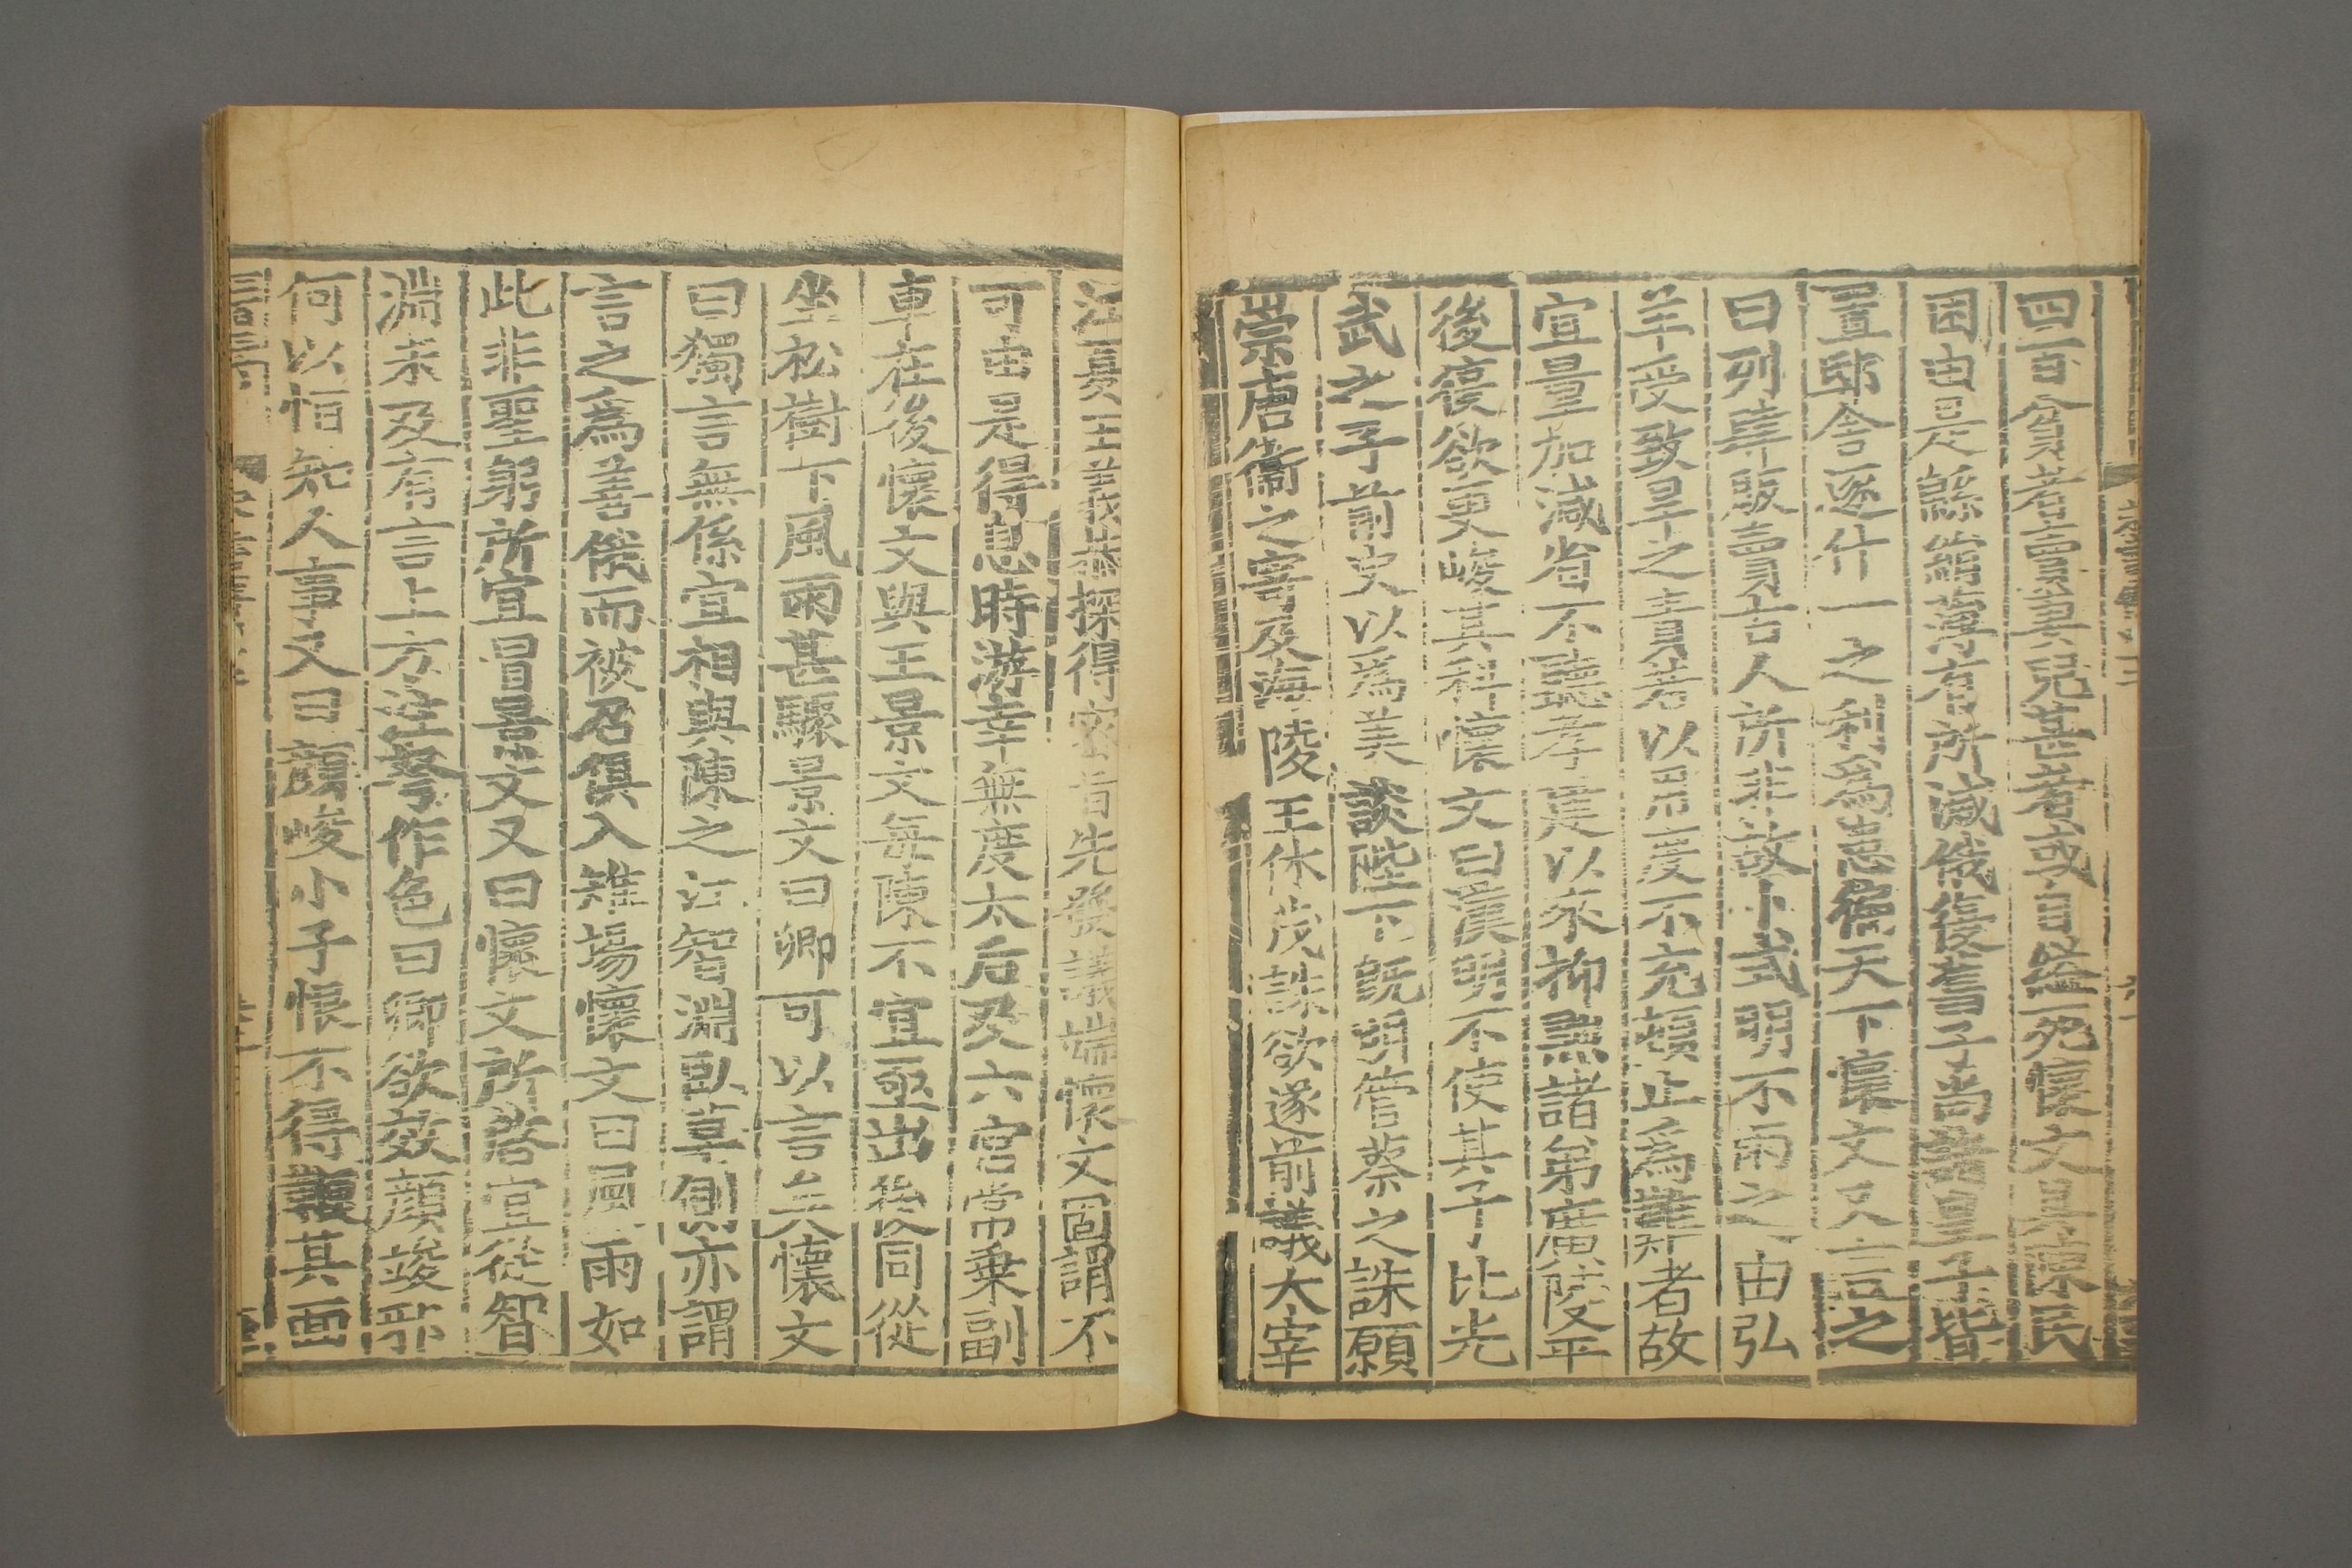 四百貧者賣妻兒甚者或自縊死懷文具陳民
困由是緜絹薄有所減俄復舊子尚等皇子皆
置邸舍逐什一之利爲患徧天下懷文又言之
曰列肆販賣古人所非故卜式明不雨之由弘
羊受致旱之責若以用度不充頓止爲難者故
宜量加減省不聽孝建以來抑黜諸弟廣陵平
後復欲更峻其科懷文曰漢明不使其子比光
武之子前史以爲美談陛下旣明管蔡之誅願
崇唐衞之寄及海陵王休茂誅欲遂前議太宰
江夏王義恭探得密旨先發議端懷文固謂不
可由是得息時游幸無度太后及六宮常乗副
車在後懷文與王景文每陳不宜亟出後同從
坐松樹下風雨甚驟景文曰卿可以言矣懷文
曰獨言無係宜相與陳之江智淵臥草側亦謂
言之爲善俄而被召俱入雉場懷文曰風雨如
此非聖躬所宜冒景文又曰懷文所啓宜從智
淵未及有言上方注弩作色曰卿欲效顏竣邪
何以恒知人事又曰顏峻小子恨不得鞭其面